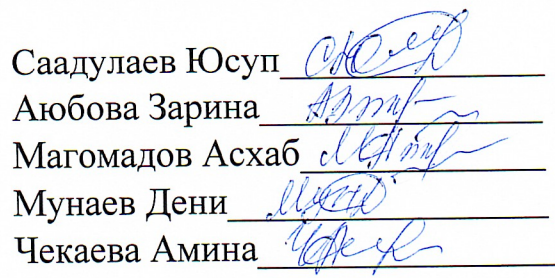 Саадулаев Юсуп
Аюбова Зарина
Магомадов Асхаб
Мунаев Дени
Чекаева Амина